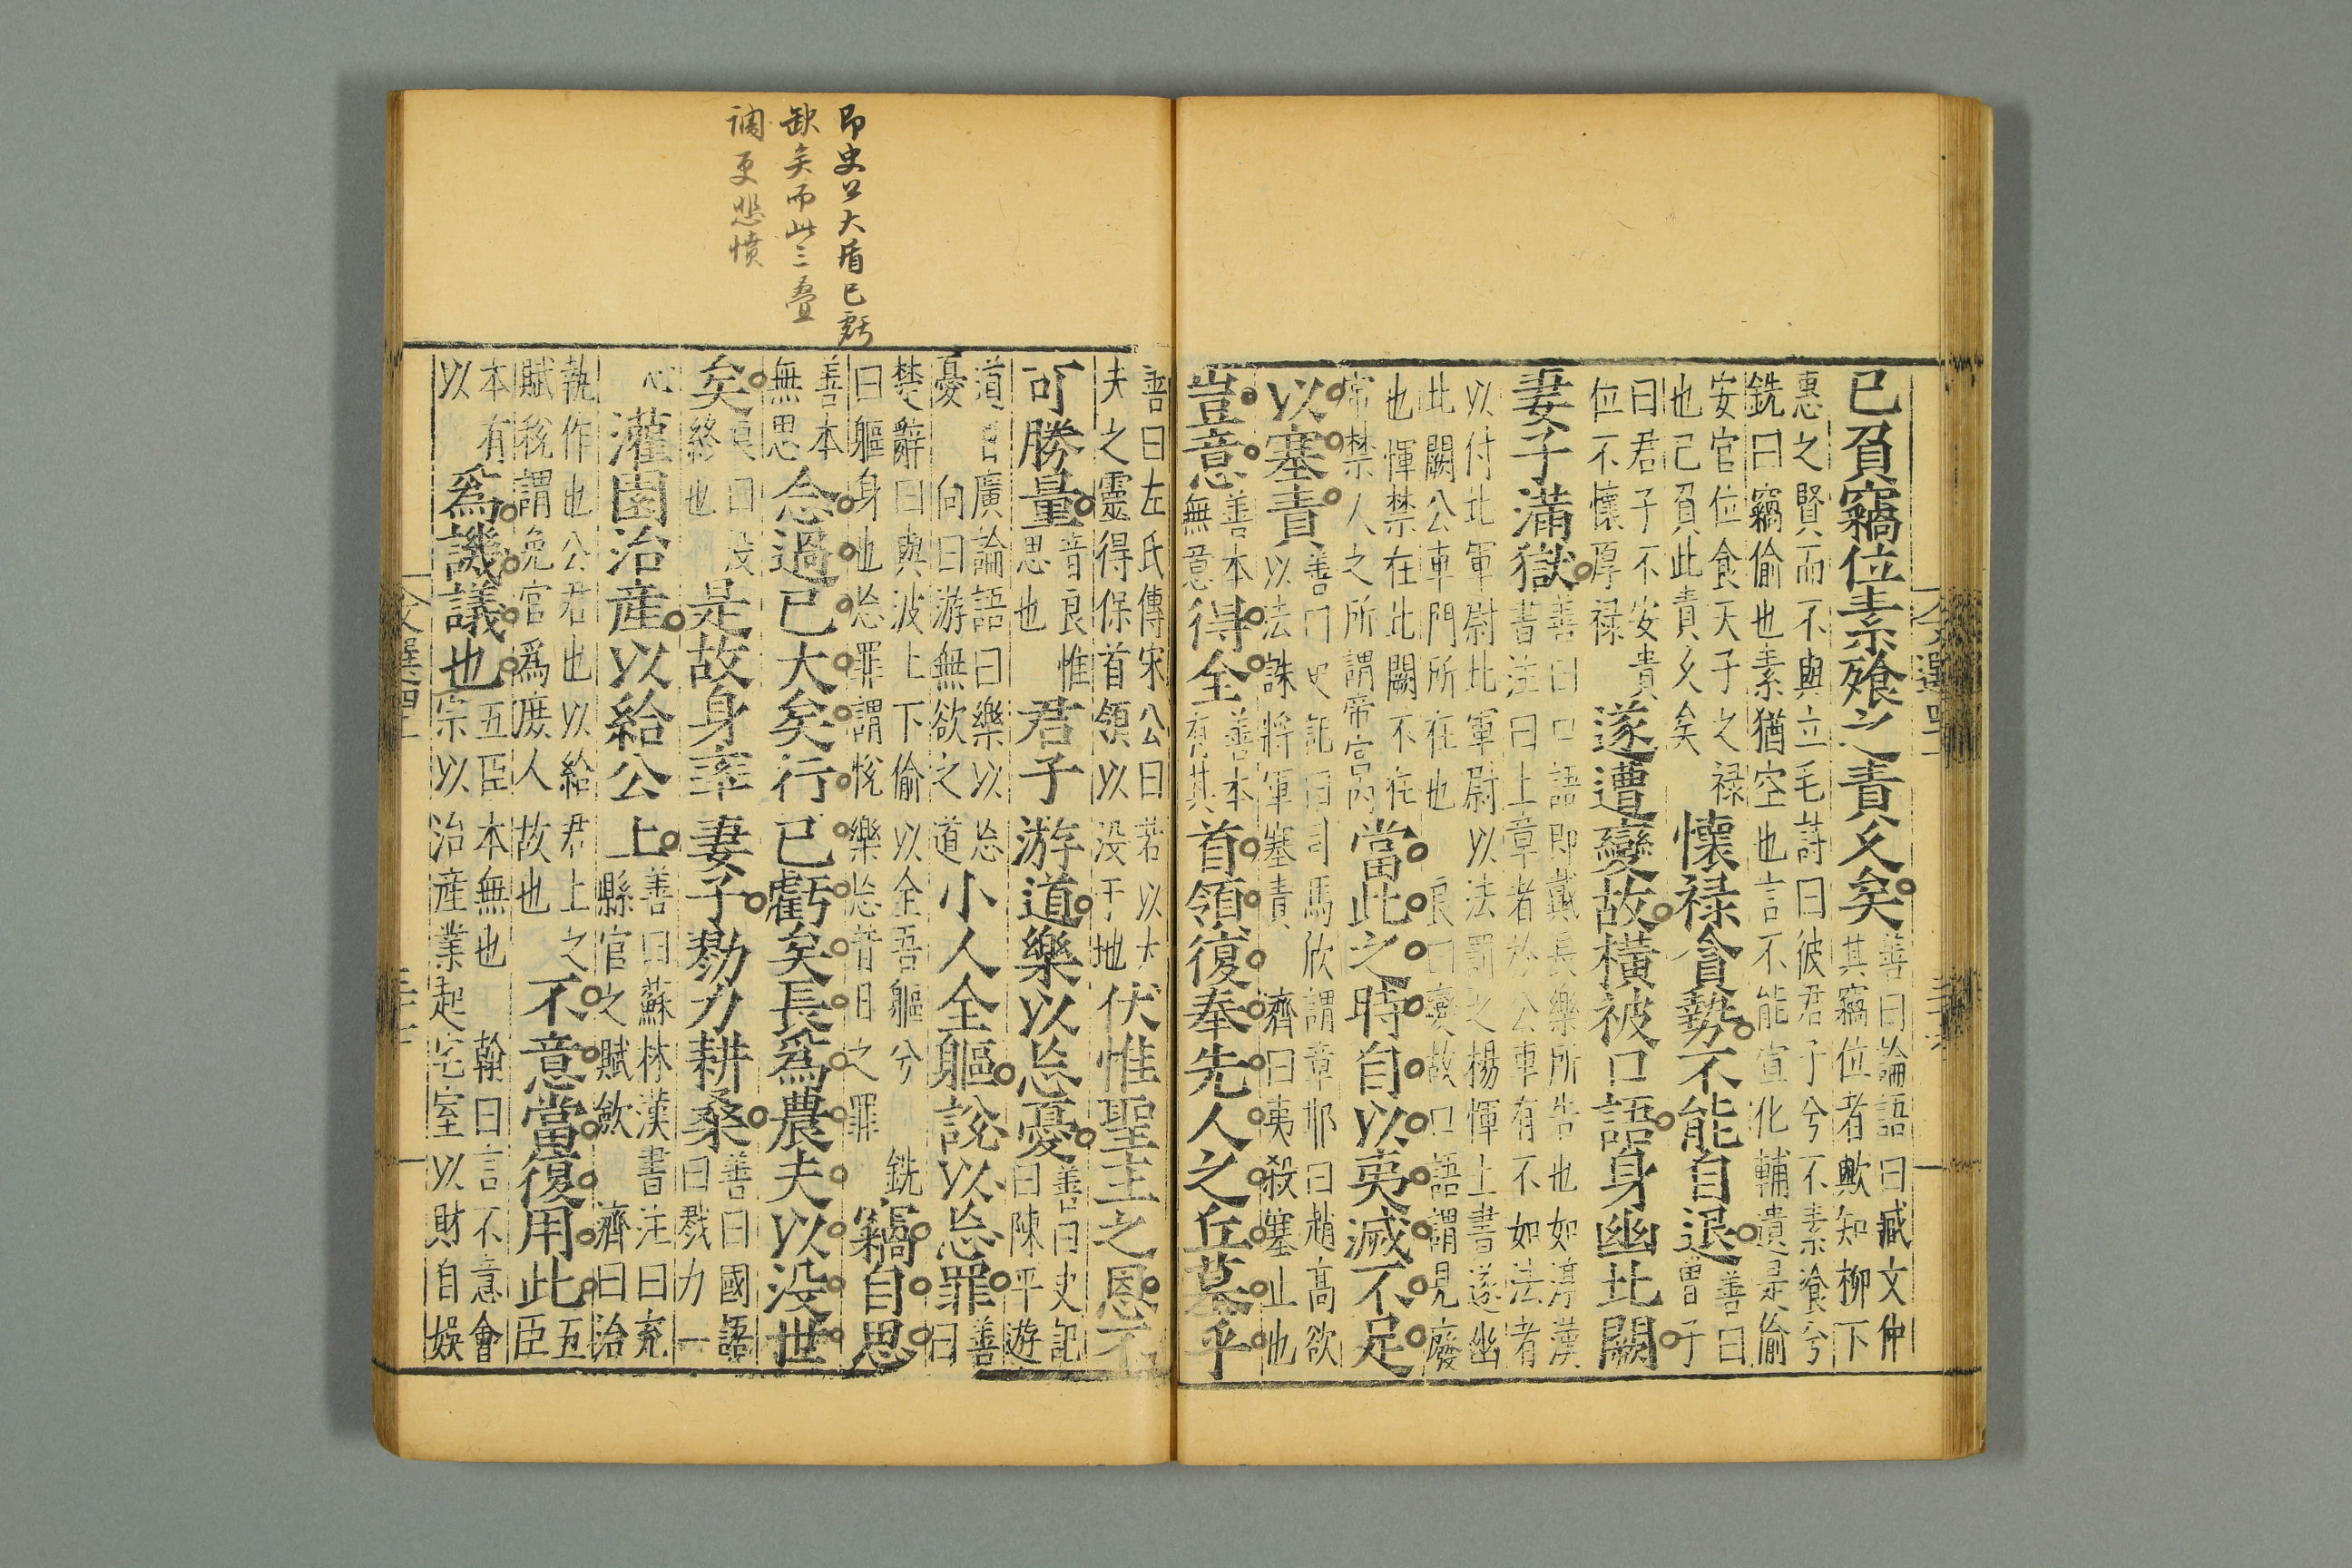 已負竊位素飡之責久矣善曰論語曰臧文仲其竊位者歟知柳下
惠之賢而不與立毛詩曰彼君子兮不素飡兮銑曰竊偷也素猶空也言不能宣化輔遺是偷
安官位食天子之禄也己負此責久矣懷禄貪勢不能自退善曰曾子
曰君子不安貴位不懷厚禄遂遭變故橫被口語身幽北闕
妻子滿獄善曰口語即戴長樂所告也如淳漢書注曰上章者於公車有不如法者
以付北軍尉北軍尉以法罰之楊惲上書遂幽此闕公車門所在也良曰變故口語謂見廢
也惲禁在北闕不在常禁人之所謂帝宮内當此之時自以夷滅不足
以塞責善曰史記曰司馬欣謂章邯曰趙高欲以法誅將軍塞責濟曰夷殺塞止也
豈意善本無意得全善本有其首領復奉先人之丘墓乎
善曰左氏傳宋公曰若以大夫之靈得保首領以没于地伏惟聖主之恩不
可勝量音良思也惟君子游道樂以忘憂善曰史記曰陳平遊
道日廣論語曰樂以忘憂向曰游無欲之道小人全軀說以忘罪善曰
楚辭曰與波上下偷以全吾軀兮銑曰軀身也忘罪謂悅樂忘昔日之罪竊自思
善本無思念過已大矣行已虧矣長為農夫以没世
矣良曰没終也是故身率妻子勠力耕桑善曰國語曰戮力一
心灌園治産以給公上善曰蘇林漢書注曰充縣官之賦歛濟曰治
執作也公君也以給君上之賦稅謂免官為庶人故也不意當復用此五臣
本有以為譏議也五臣本無也翰曰言不意會宗以治產業起宅室以財自娛
文選四十一
即史公大盾已虧
缺矣而此三疊
調更悲憤